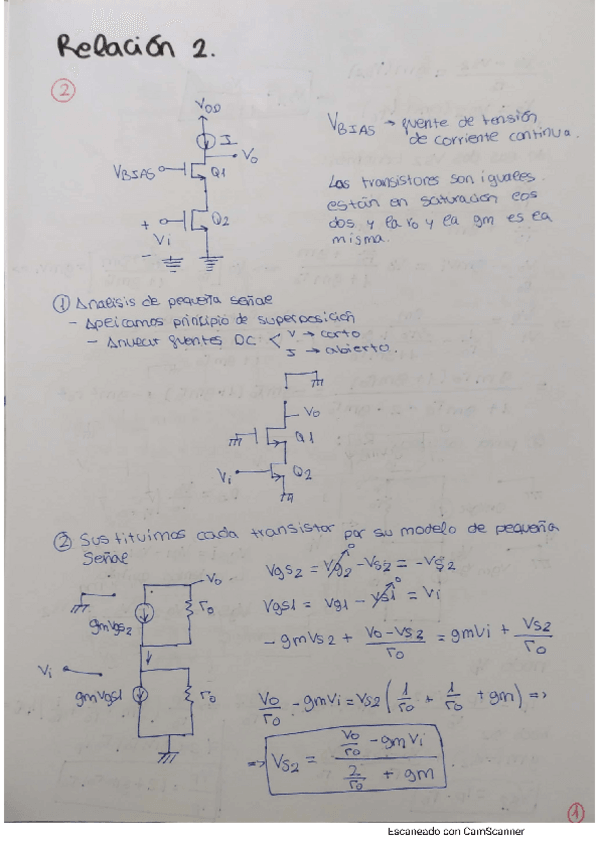 Relación 2.
2
VDD
I
Vo
VBIAS
Q1
+
Vi
-
Q2
VBIAS → fuente de tensión
de corriente continua.
Los transistores son iguales
están en saturación los
dos y la ro y la gm es la
misma.
① Analisis de pequeña señal
- Aplicamos principio de superposición
- Anular fuentes DC < V → corto
I → abierto.
Vo
Q1
Vi
Q2
② Sustituimos cada transistor por su modelo de pequeña
señal
Vo
gmVgs2
ro
Vi
gmVgs1
ro
Vgs2 = Vg2 - Vs2 = -Vs2
0
Vgs1 = Vg1 - Vs1 = Vi
0
-gmVs2 + (Vo - Vs2)/ro = gmVi + Vs2/ro
Vo/ro - gmVi = Vs2 (1/ro + 1/ro + gm) =>
=> Vs2 = (Vo/ro - gmVi)/(2/ro + gm)
1
Escaneado con CamScanner